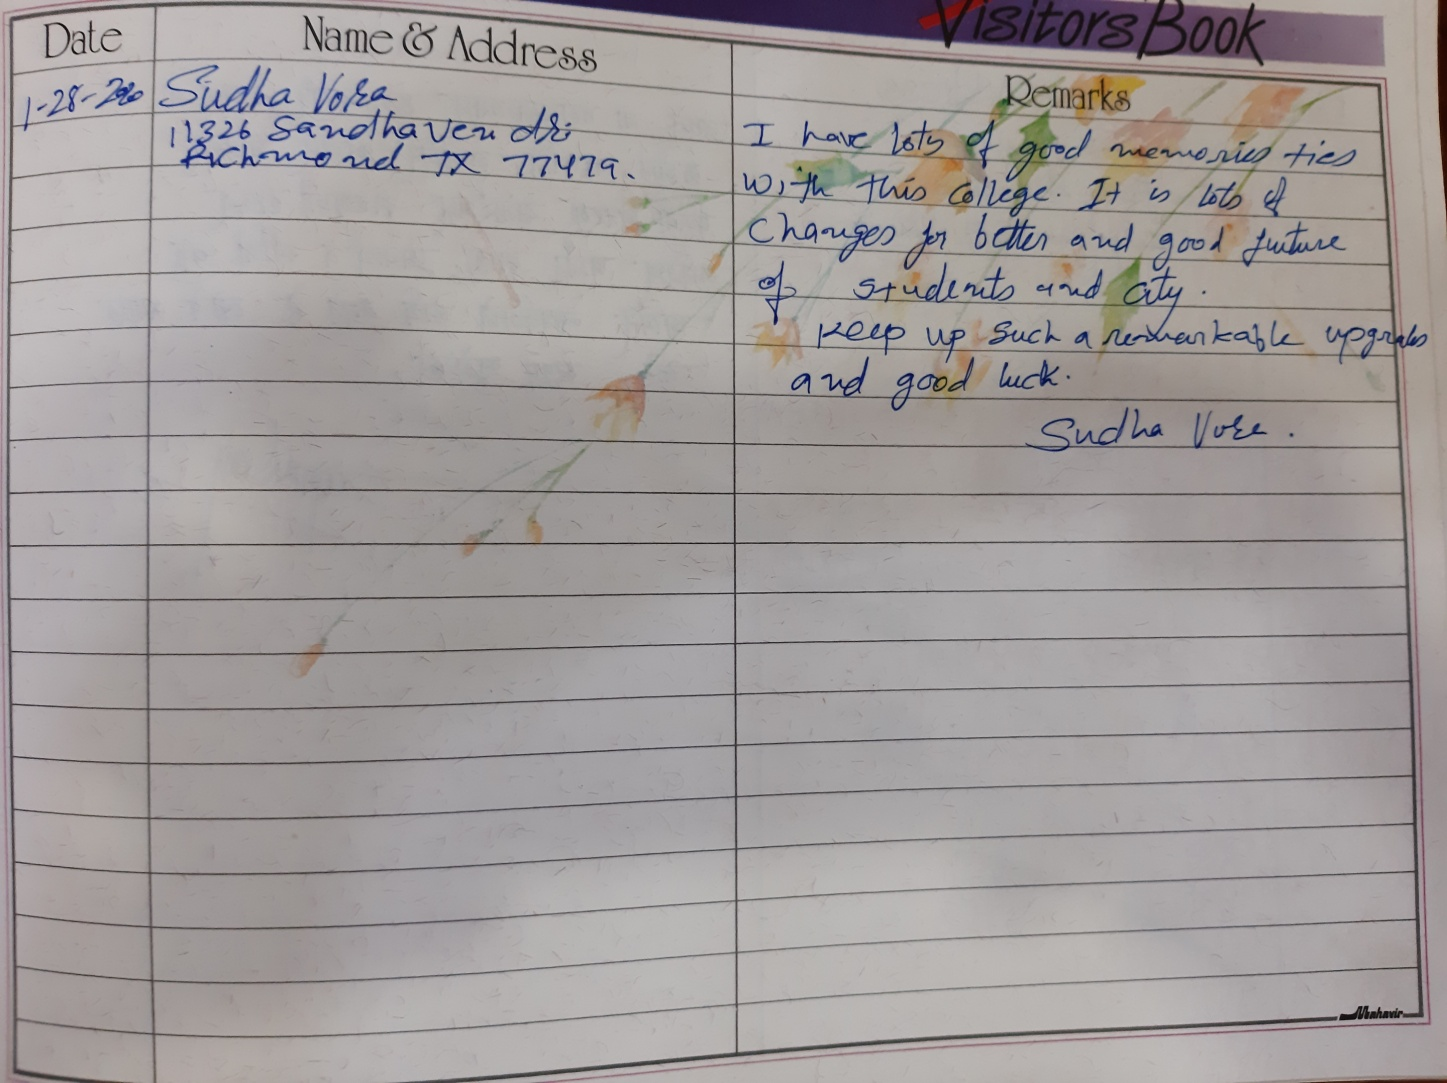 Visitors Book
Date
Name & Address
Remarks
1-28-2020
Sudha Vora
11326 Sandhaven dr.
Richmond TX 77479.
I have lots of good memories ties
with this college. It is lots of
changes for better and good furture
of students and city.
Keep up such a remarkable upgrades
and good luck.
Sudha Vora.
Mahavir